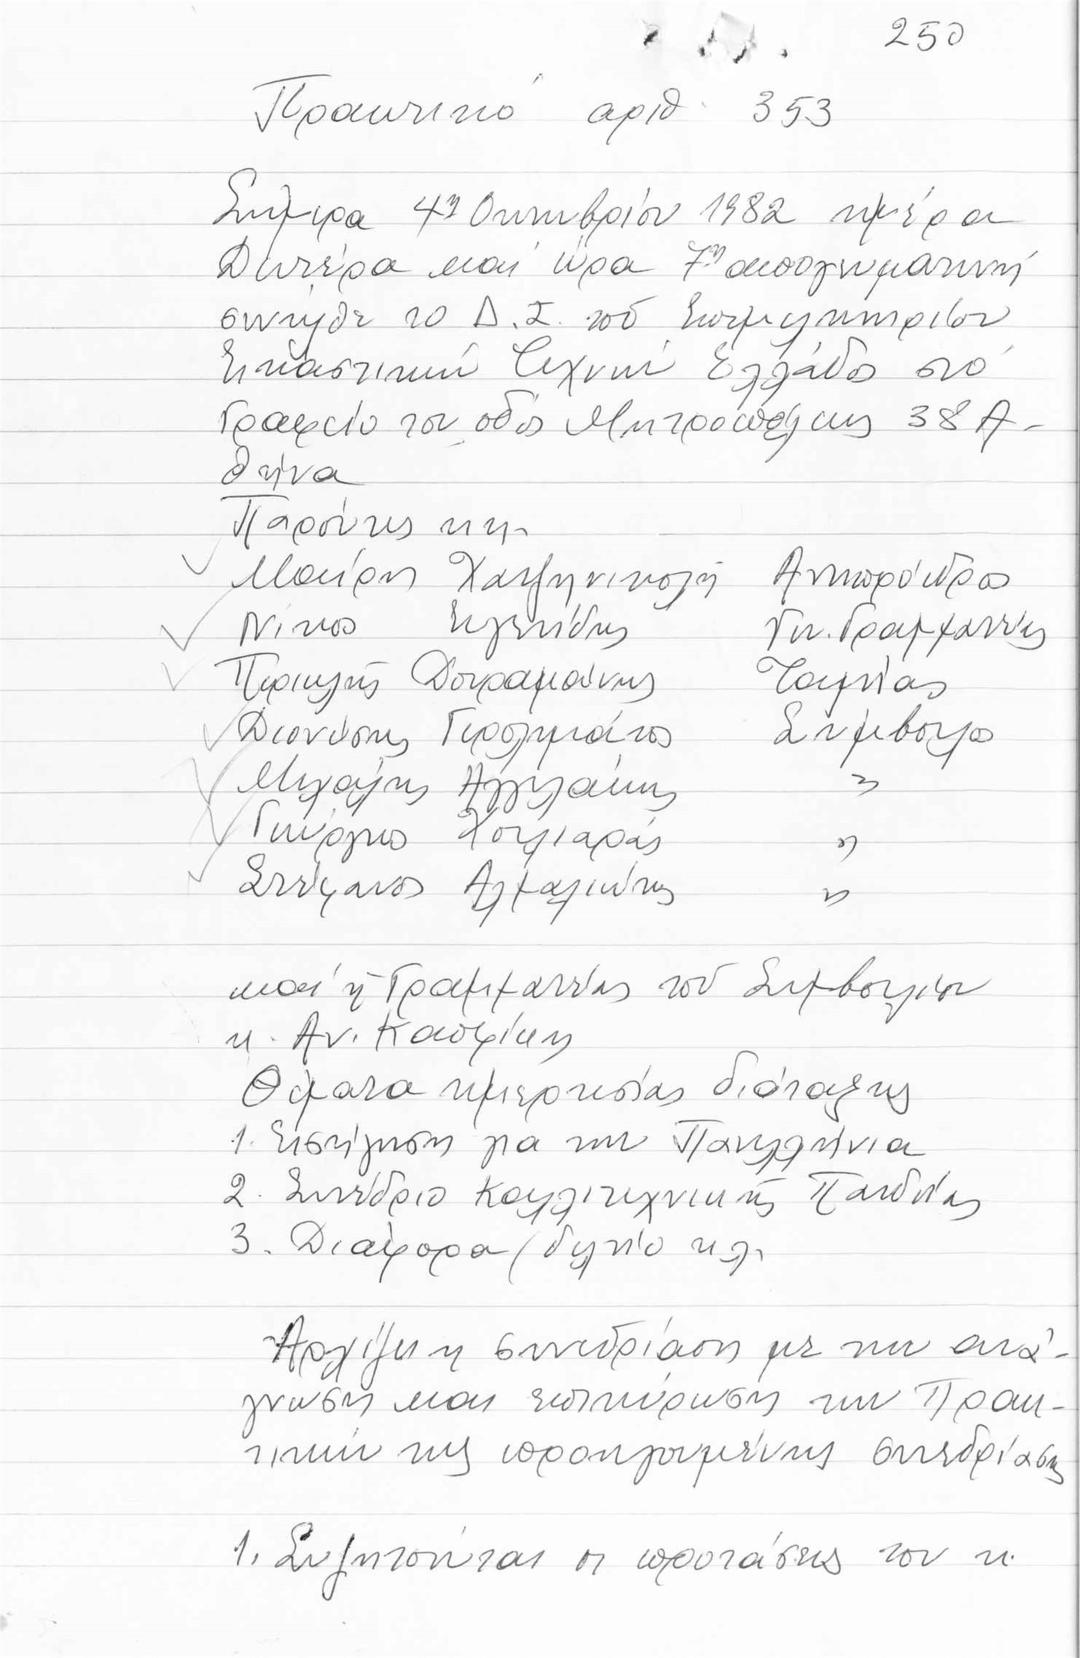 250
Πρακτικό αριθ. 353
Σήμερα 4η Οκτωβρίου 1982 ημέρα
Δευτέρα και ώρα 7η απογευματινή
συνήλθε το Δ.Σ. του Επιμελητηρίου
Εικαστικών Τεχνών Ελλάδος στό
Γραφείο του οδός Μητροπόλεως 38 Α-
θήνα
Παρόντες κ.κ.
Μαίρη Χατζηνικολή Αντιπρόεδρος
Νίκος Γεν. Γραμματέας
Περικλής Δουραμάνης Ταμίας
Διονύσης Γερολυμάτος Σύμβουλος
Μιχάλης Αγγελάκης "
Γιώργος Χουλιαράς "
Στέφανος Αλμαλιώτης "
καί ή Γραμματέας τού Συμβουλίου
κ. Αν. Κασφίκη
Θέματα ημερησίας διάταξης
1. Εισήγηση για την Πανελλήνια
2. Συνέδριο Καλλιτεχνικής Παιδείας
3. Διάφορα (δελτίο κ.λ.
Αρχίζει η συνεδρίαση με την ανά-
γνωση και επικύρωση των Πρακ-
τικών της προηγουμένης συνεδρίασης
1. Συζητούνται οι προτάσεις του κ.